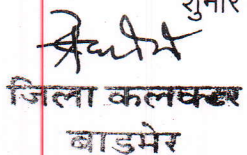 शुमार
जिला कलक्टर
बाडमेर